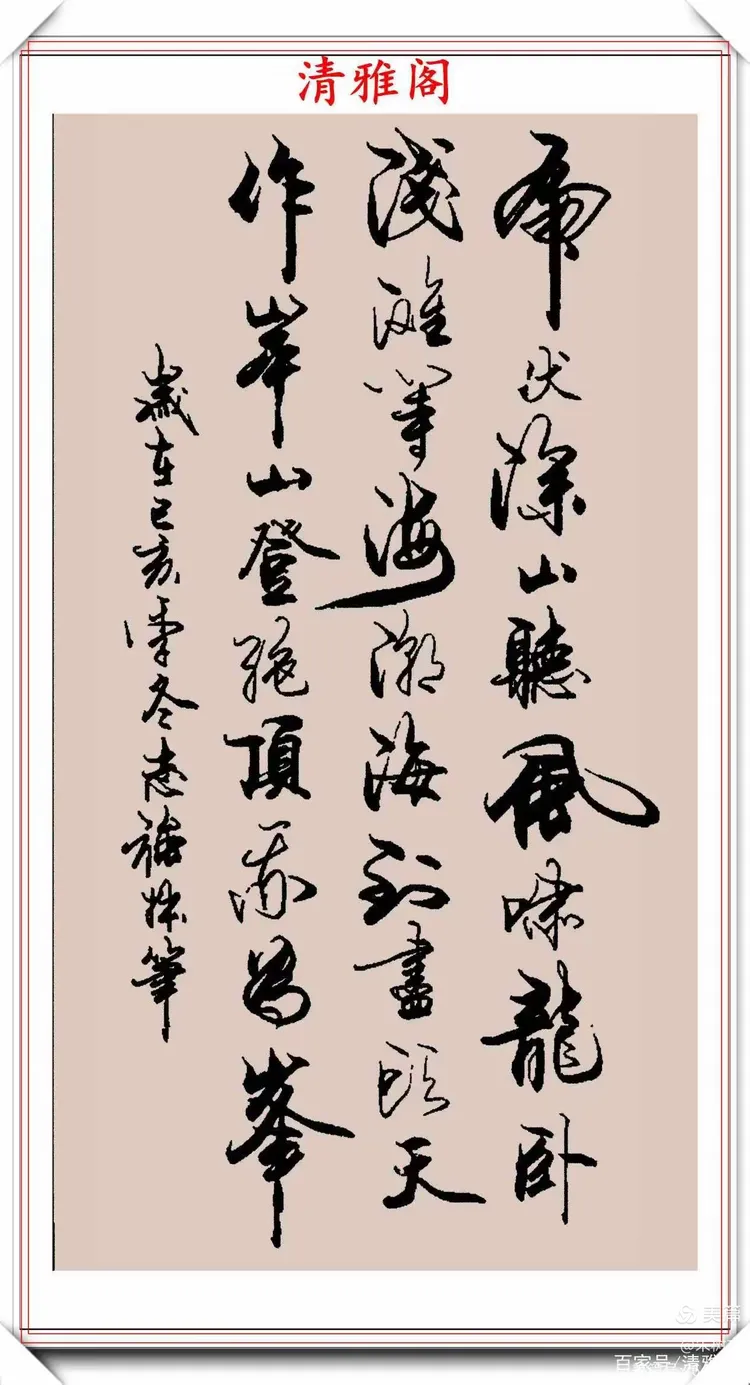 清雅阁
虎伏深山聽風嘯龍卧
淺灘等海潮海到盡頭天
作岸山登絶頂我為峯
歲在己亥季冬志筆
美篇
百家号/清雅